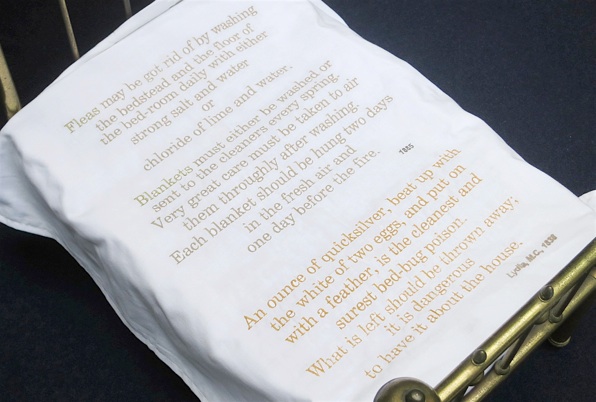 Fleas may be got rid of by washing
the bedstead and the floor of
the bed-room daily with either
strong salt and water
or
chloride of lime and water.
Blankets must either be washed or
sent to the cleaners every spring.
Very great care must be taken to air
them throughly after washing.
Each blanket should be hung two days
in the fresh air and
one day before the fire.
1885
An ounce of quicksilver, beat up with
the white of two eggs, and put on
with a feather, is the cleanest and
surest bed-bug poison.
What is left should be thrown away;
it is dangerous
to have it about the house.
Lydia, M.C., 1838